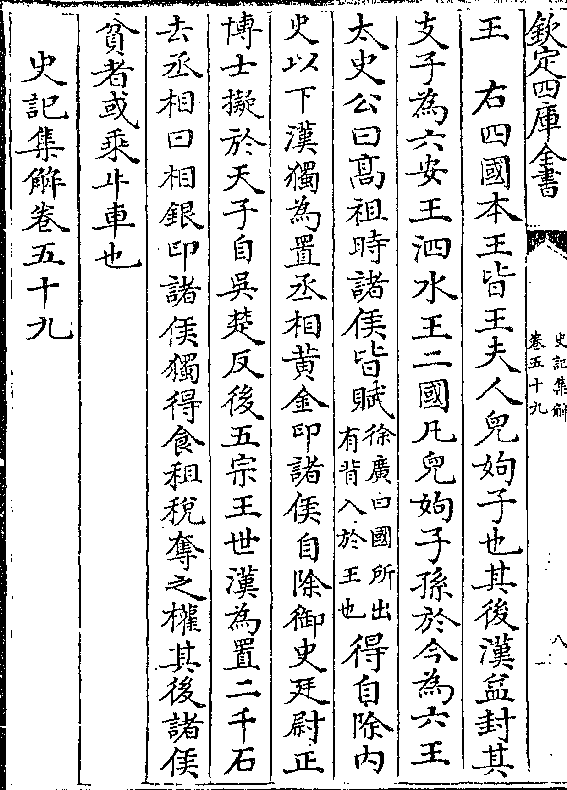 欽定四庫全書
史記集解
卷五十九
八
王　右四國本王皆王夫人兒姁子也其後漢益封其
支子為六安王泗水王二國凡兒姁子孫於今為六王
太史公曰高祖時諸侯皆賦徐廣曰國所出有皆入於王也得自除内
史以下漢獨為置丞相黄金印諸侯自除御史廷尉正
博士擬於天子自吳楚反後五宗王世漢為置二千石
去丞相曰相銀印諸侯獨得食租稅奪之權其後諸侯
貧者或乘牛車也
史記集解卷五十九